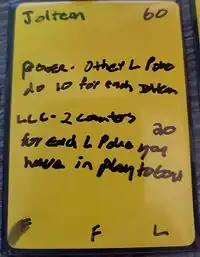 Joltem 60
power - Other L Poke
do 10 for each Joltem
LLC - 2 counters
for each L Poke you 20
have in play to
F L